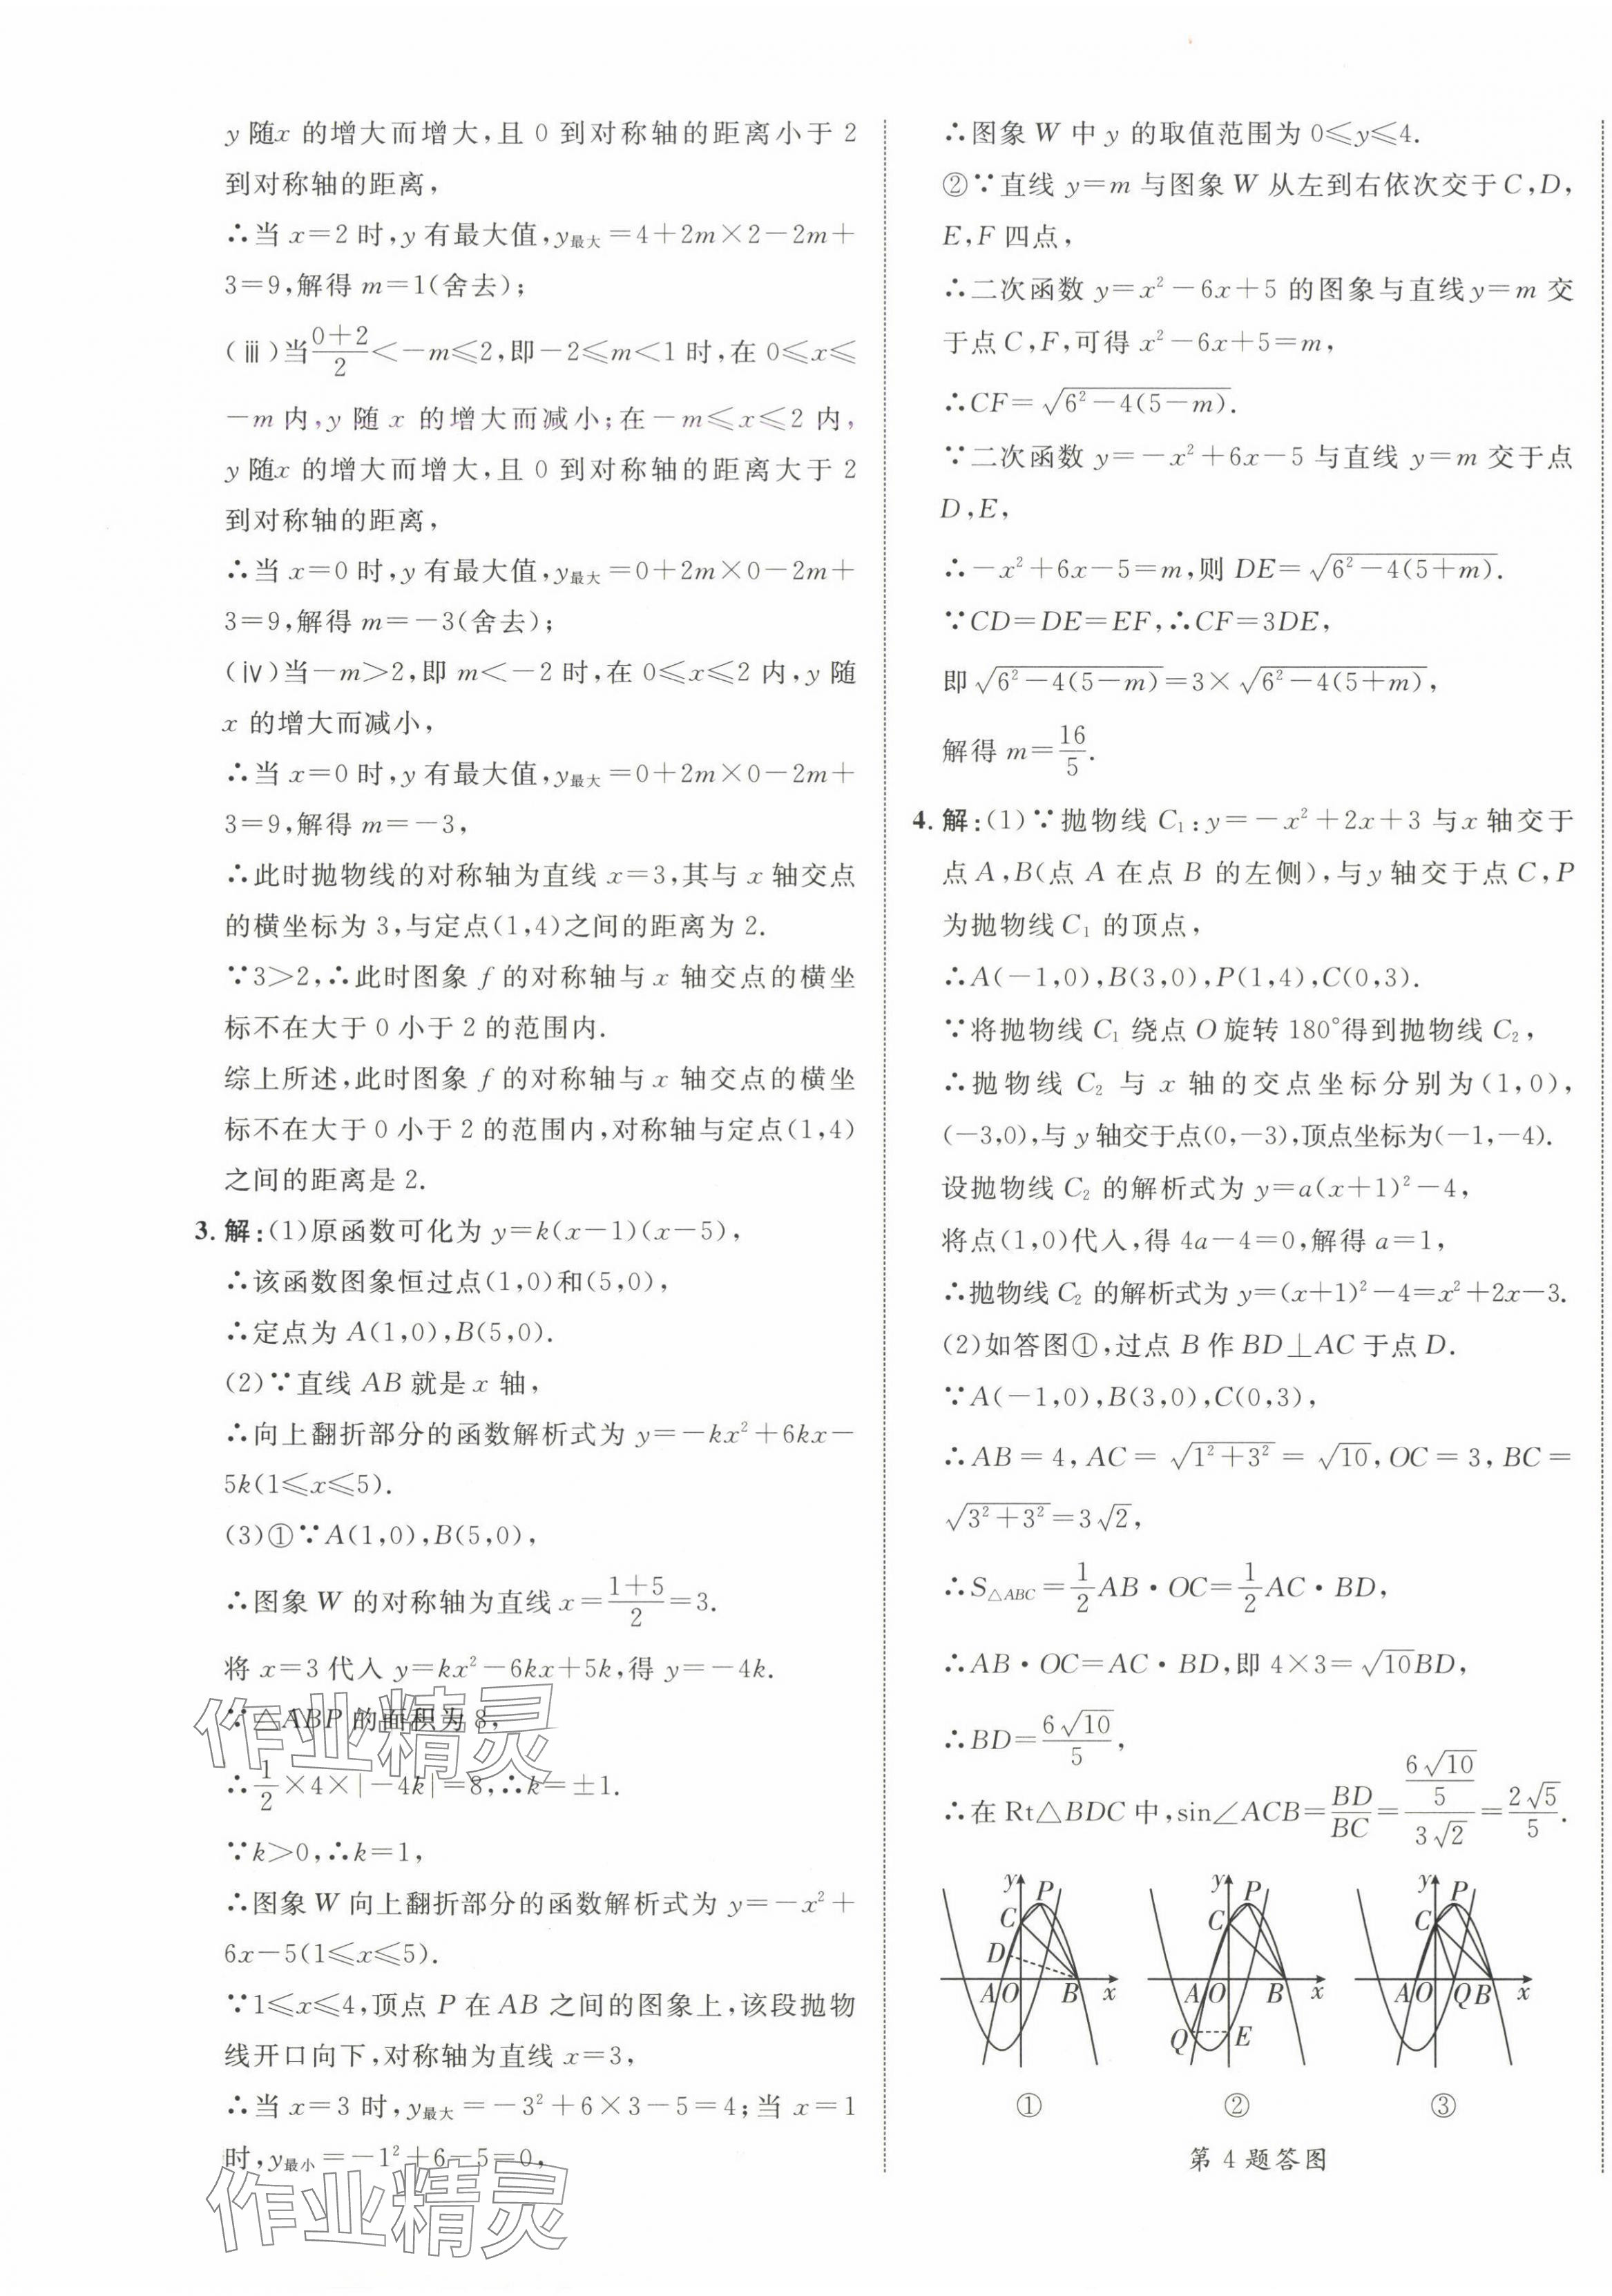 y 随x 的增大而增大,且 0 到对称轴的距离小于 2
到对称轴的距离,
∴当 x=2 时,y 有最大值,y最大=4+2m×2-2m+
3=9,解得 m=1(舍去);
(ⅲ)当(0+2)/2<-m≤2,即-2≤m<1 时,在 0≤x≤
-m 内,y 随 x 的增大而减小;在-m≤x≤2 内,
y 随x 的增大而增大,且 0 到对称轴的距离大于 2
到对称轴的距离,
∴当 x=0 时,y 有最大值,y最大=0+2m×0-2m+
3=9,解得 m=-3(舍去);
(ⅳ)当-m>2,即 m<-2 时,在 0≤x≤2 内,y 随
x 的增大而减小,
∴当 x=0 时,y 有最大值,y最大=0+2m×0-2m+
3=9,解得 m=-3,
∴此时抛物线的对称轴为直线 x=3,其与 x 轴交点
的横坐标为 3,与定点(1,4)之间的距离为 2.
∵3>2,∴此时图象 f 的对称轴与 x 轴交点的横坐
标不在大于 0 小于 2 的范围内.
综上所述,此时图象 f 的对称轴与 x 轴交点的横坐
标不在大于 0 小于 2 的范围内,对称轴与定点(1,4)
之间的距离是 2.
3. 解:(1)原函数可化为 y=k(x-1)(x-5),
∴该函数图象恒过点(1,0)和(5,0),
∴定点为 A(1,0),B(5,0).
(2)∵直线 AB 就是 x 轴,
∴向上翻折部分的函数解析式为 y=-kx²+6kx-
5k(1≤x≤5).
(3)①∵A(1,0),B(5,0),
∴图象 W 的对称轴为直线 x=(1+5)/2=3.
将 x=3 代入 y=kx²-6kx+5k,得 y=-4k.
∵△ABP 的面积为 8,
∴1/2×4×|-4k|=8,∴k=±1.
∵k>0,∴k=1,
∴图象 W 向上翻折部分的函数解析式为 y=-x²+
6x-5(1≤x≤5).
∵1≤x≤4,顶点 P 在 AB 之间的图象上,该段抛物
线开口向下,对称轴为直线 x=3,
∴当 x=3 时,y最大=-3²+6×3-5=4;当 x=1
时,y最小=-1²+6-5=0,
作业精灵
作业精灵
∴图象 W 中 y 的取值范围为 0≤y≤4.
②∵直线 y=m 与图象 W 从左到右依次交于 C,D,
E,F 四点,
∴二次函数 y=x²-6x+5 的图象与直线 y=m 交
于点 C,F,可得 x²-6x+5=m,
∴CF=√(6²-4(5-m)).
∵二次函数 y=-x²+6x-5 与直线 y=m 交于点
D,E,
∴-x²+6x-5=m,则 DE=√(6²-4(5+m)).
∵CD=DE=EF,∴CF=3DE,
即√(6²-4(5-m))=3×√(6²-4(5+m)),
解得 m=16/5.
4. 解:(1)∵抛物线 C₁:y=-x²+2x+3 与 x 轴交于
点 A,B(点 A 在点 B 的左侧),与 y 轴交于点 C,P
为抛物线 C₁ 的顶点,
∴A(-1,0),B(3,0),P(1,4),C(0,3).
∵将抛物线 C₁ 绕点 O 旋转 180°得到抛物线 C₂,
∴抛物线 C₂ 与 x 轴的交点坐标分别为(1,0),
(-3,0),与 y 轴交于点(0,-3),顶点坐标为(-1,-4).
设抛物线 C₂ 的解析式为 y=a(x+1)²-4,
将点(1,0)代入,得 4a-4=0,解得 a=1,
∴抛物线 C₂ 的解析式为 y=(x+1)²-4=x²+2x-3.
(2)如答图①,过点 B 作 BD⊥AC 于点 D.
∵A(-1,0),B(3,0),C(0,3),
∴AB=4,AC=√(1²+3²)=√10,OC=3,BC=
√(3²+3²)=3√2,
∴S△ABC=1/2AB·OC=1/2AC·BD,
∴AB·OC=AC·BD,即 4×3=√10BD,
∴BD=6√10/5,
∴在 Rt△BDC 中,sin∠ACB=BD/BC=(6√10/5)/(3√2)=2√5/5.
y P C D A O B x
y P C A O B x Q E
y P C A O Q B x
① ② ③
第 4 题答图